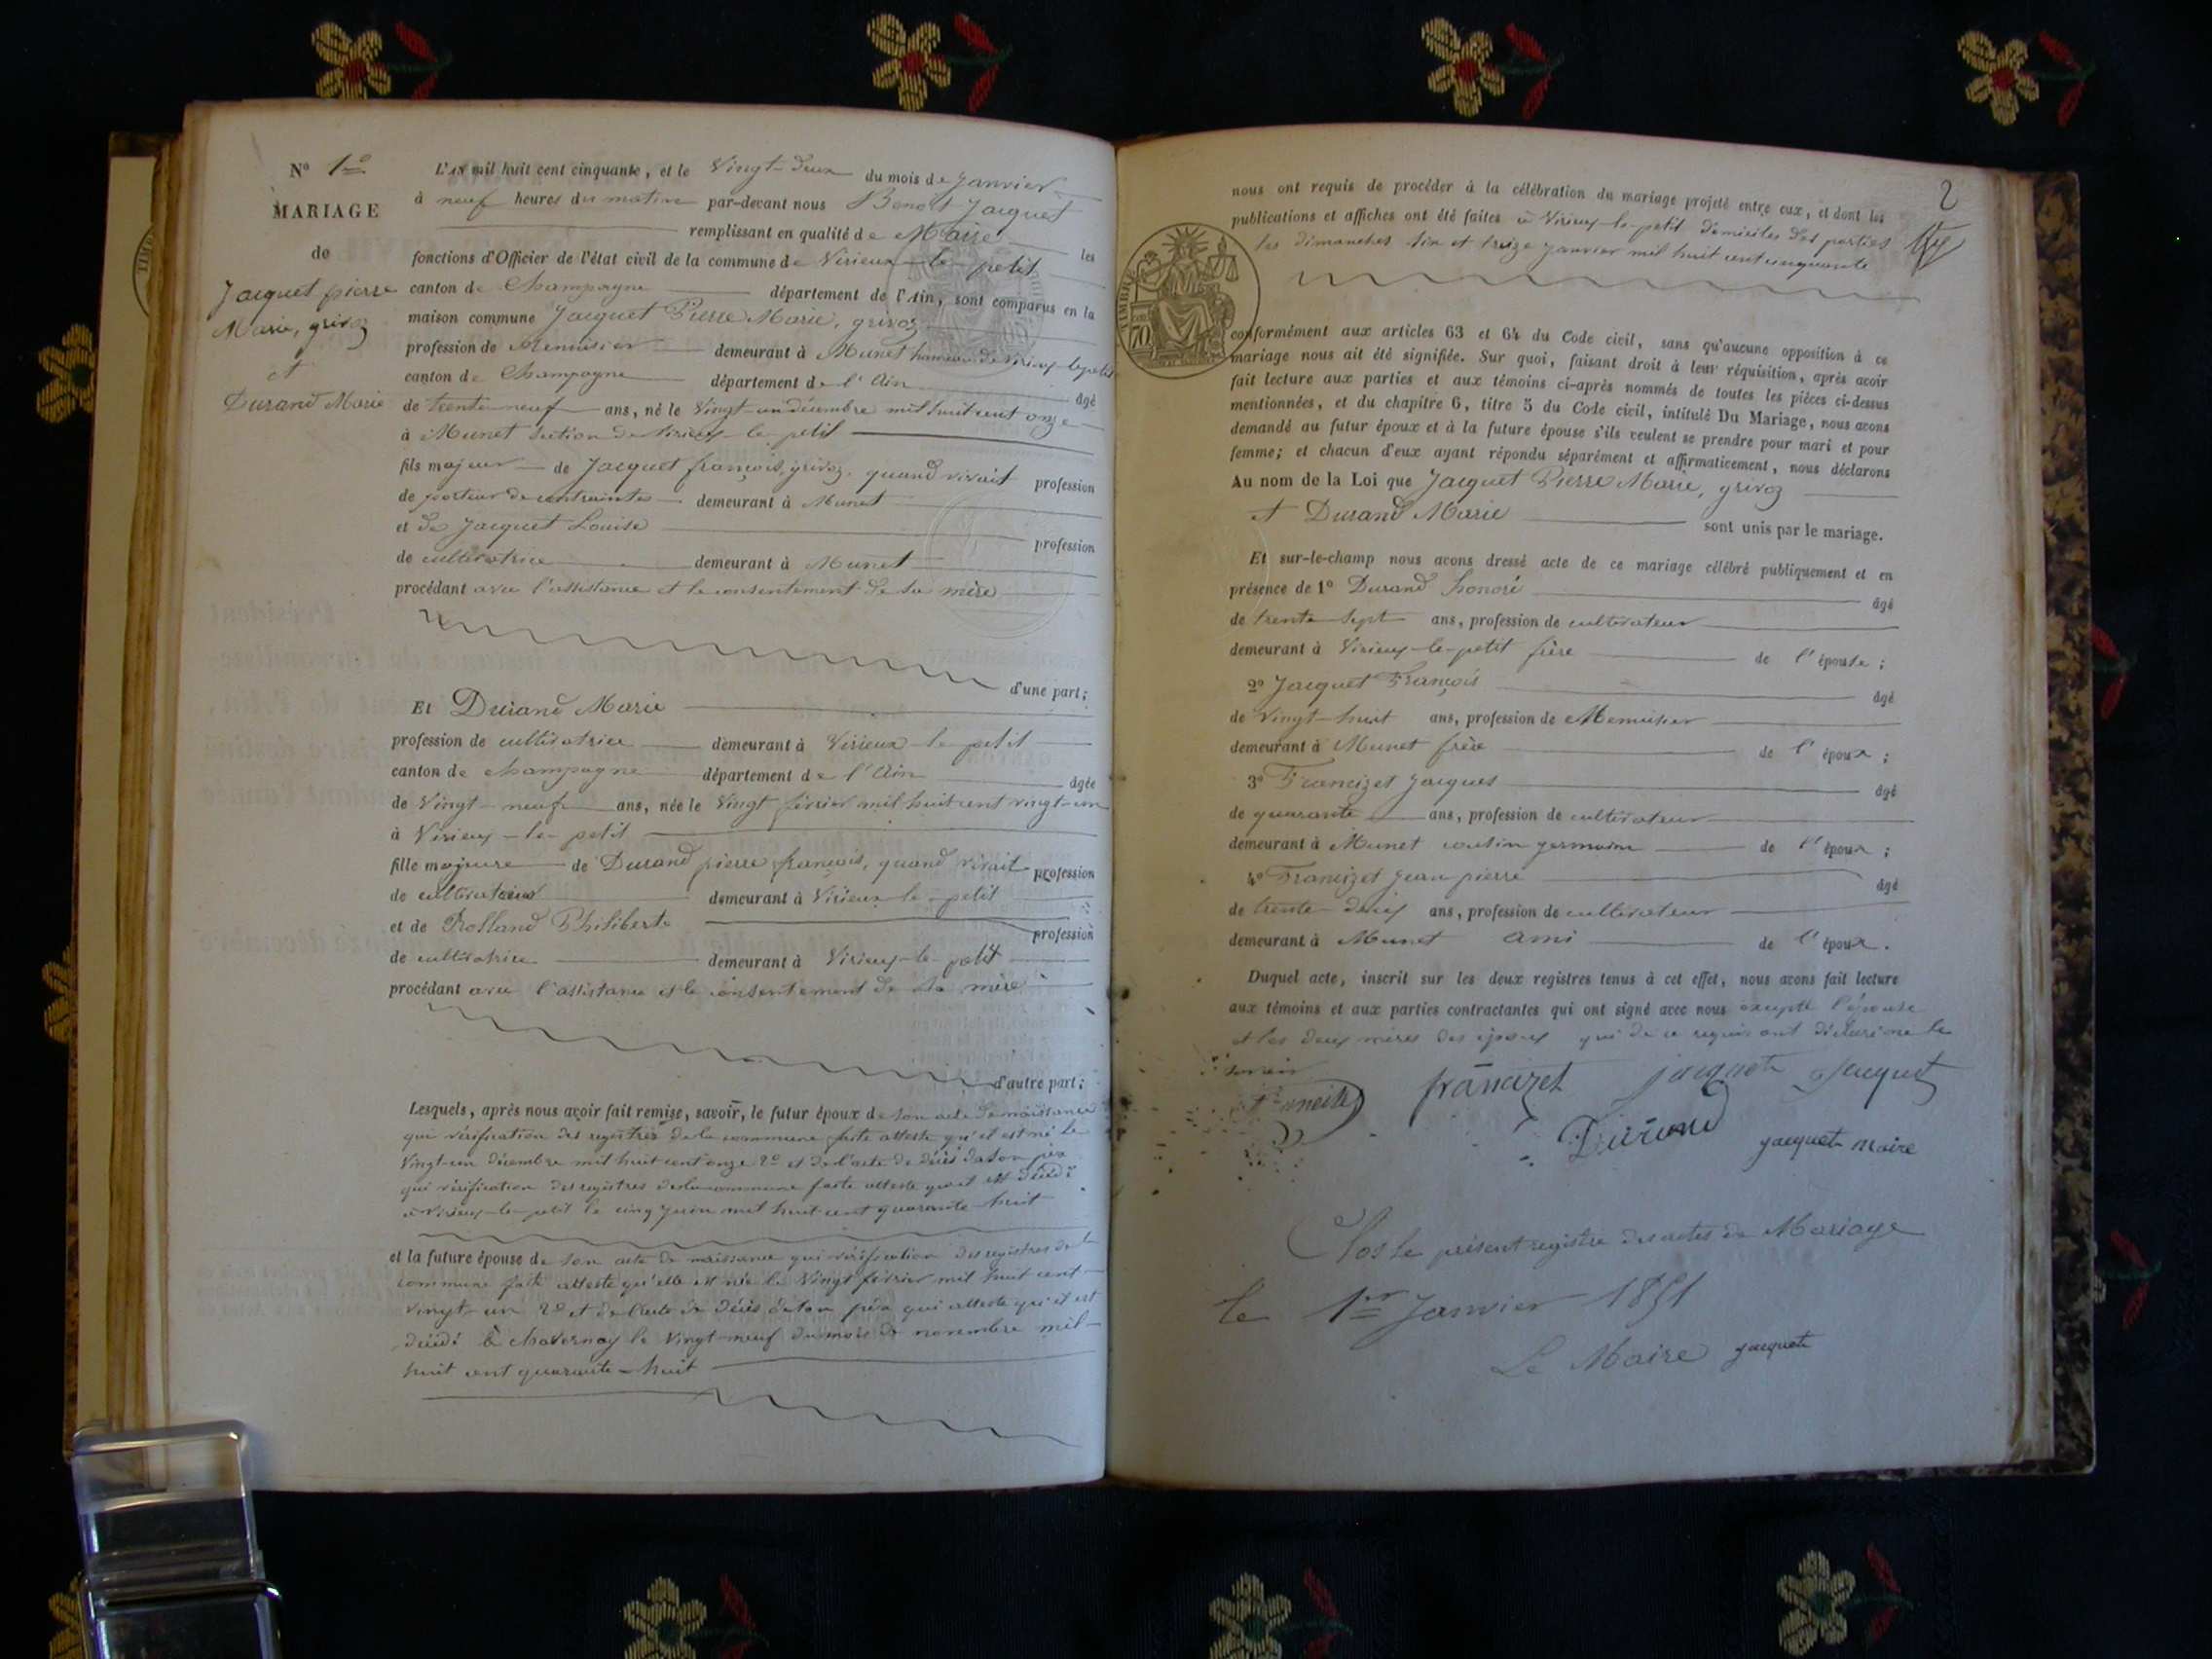 N° 1°
MARIAGE
de
Jacquet pierre
Marie, grivoz
et
Durand Marie
L'AN mil huit cent cinquante, et le Vingt-deux du mois de Janvier
à neuf heures du matin par-devant nous Benoit Jacquet
remplissant en qualité de Maire les
fonctions d'Officier de l'état civil de la commune de Virieux-le-petit
canton de Champagne département de l'Ain, sont comparus en la
maison commune Jacquet Pierre Marie, grivoz
profession de Menuisier demeurant à Munet hameau de Virieux-le-petit
canton de Champagne département de l'Ain âgé
de trente neuf ans, né le Vingt-un décembre mil huit cent onze
à Munet section de Virieux-le-petit
fils majeur de Jacquet françois, grivoz, quand vivait profession
de porteur de contraintes demeurant à Munet
et de Jacquet Louise profession
de cultivatrice demeurant à Munet
procédant avec l'assistance et le consentement de sa mère
d'une part;
Et Durand Marie
profession de cultivatrice demeurant à Virieux-le-petit
canton de champagne département de l'Ain âgée
de Vingt-neuf ans, née le Vingt février mil huit cent vingt-un
à Virieux-le-petit
fille majeure de Durand pierre françois, quand vivait profession
de cultivateur demeurant à Virieux-le-petit
et de Rolland Philiberte profession
de cultivatrice demeurant à Virieux-le-petit
procédant avec l'assistance et le consentement de sa mère
d'autre part;
Lesquels, après nous avoir fait remise, savoir, le futur époux de son acte de naissance
qui vérification des registres de la commune faite atteste qu'il est né le
Vingt-un décembre mil huit cent onze 2° et de l'acte de décès de son père
qui vérification des registres de la commune faite atteste qu'il est décédé
à Virieux-le-petit le cinq Juin mil huit cent quarante-huit
et la future épouse de son acte de naissance qui vérification des registres de la
commune faite atteste qu'elle est née le Vingt février mil huit cent
vingt-un 2° et de l'acte de décès de son père qui atteste qu'il est
décédé à chavornay le Vingt-neuf du mois de novembre mil
huit cent quarante-huit
2
nous ont requis de procéder à la célébration du mariage projeté entre eux, et dont les
publications et affiches ont été faites à Virieux-le-petit domiciles des parties
les dimanches six et treize janvier mil huit cent cinquante
TIMBRE
70
conformément aux articles 63 et 64 du Code civil, sans qu'aucune opposition à ce
mariage nous ait été signifiée. Sur quoi, faisant droit à leur réquisition, après avoir
fait lecture aux parties et aux témoins ci-après nommés de toutes les pièces ci-dessus
mentionnées, et du chapitre 6, titre 5 du Code civil, intitulé Du Mariage, nous avons
demandé au futur époux et à la future épouse s'ils veulent se prendre pour mari et pour
femme; et chacun d'eux ayant répondu séparément et affirmativement, nous déclarons
Au nom de la Loi que Jacquet Pierre Marie, grivoz
et Durand Marie sont unis par le mariage.
Et sur-le-champ nous avons dressé acte de ce mariage célébré publiquement et en
présence de 1° Durand honoré âgé
de trente-sept ans, profession de cultivateur
demeurant à Virieux-le-petit frère de l'épouse;
2° Jacquet François âgé
de vingt-huit ans, profession de Menuisier
demeurant à Munet frère de l'époux;
3° Francizet Jacques âgé
de quarante ans, profession de cultivateur
demeurant à Munet cousin germain de l'époux;
4° Francizet Jean pierre âgé
de trente-deux ans, profession de cultivateur
demeurant à Munet ami de l'époux.
Duquel acte, inscrit sur les deux registres tenus à cet effet, nous avons fait lecture
aux témoins et aux parties contractantes qui ont signé avec nous excepté l'épouse
et les deux mères des époux qui de ce requis ont déclaré ne le
savoir
francizet jacquet Jacquet
Durand jacquet maire
Clos le présent registre des actes de Mariage
le 1er Janvier 1851
Le Maire jacquet